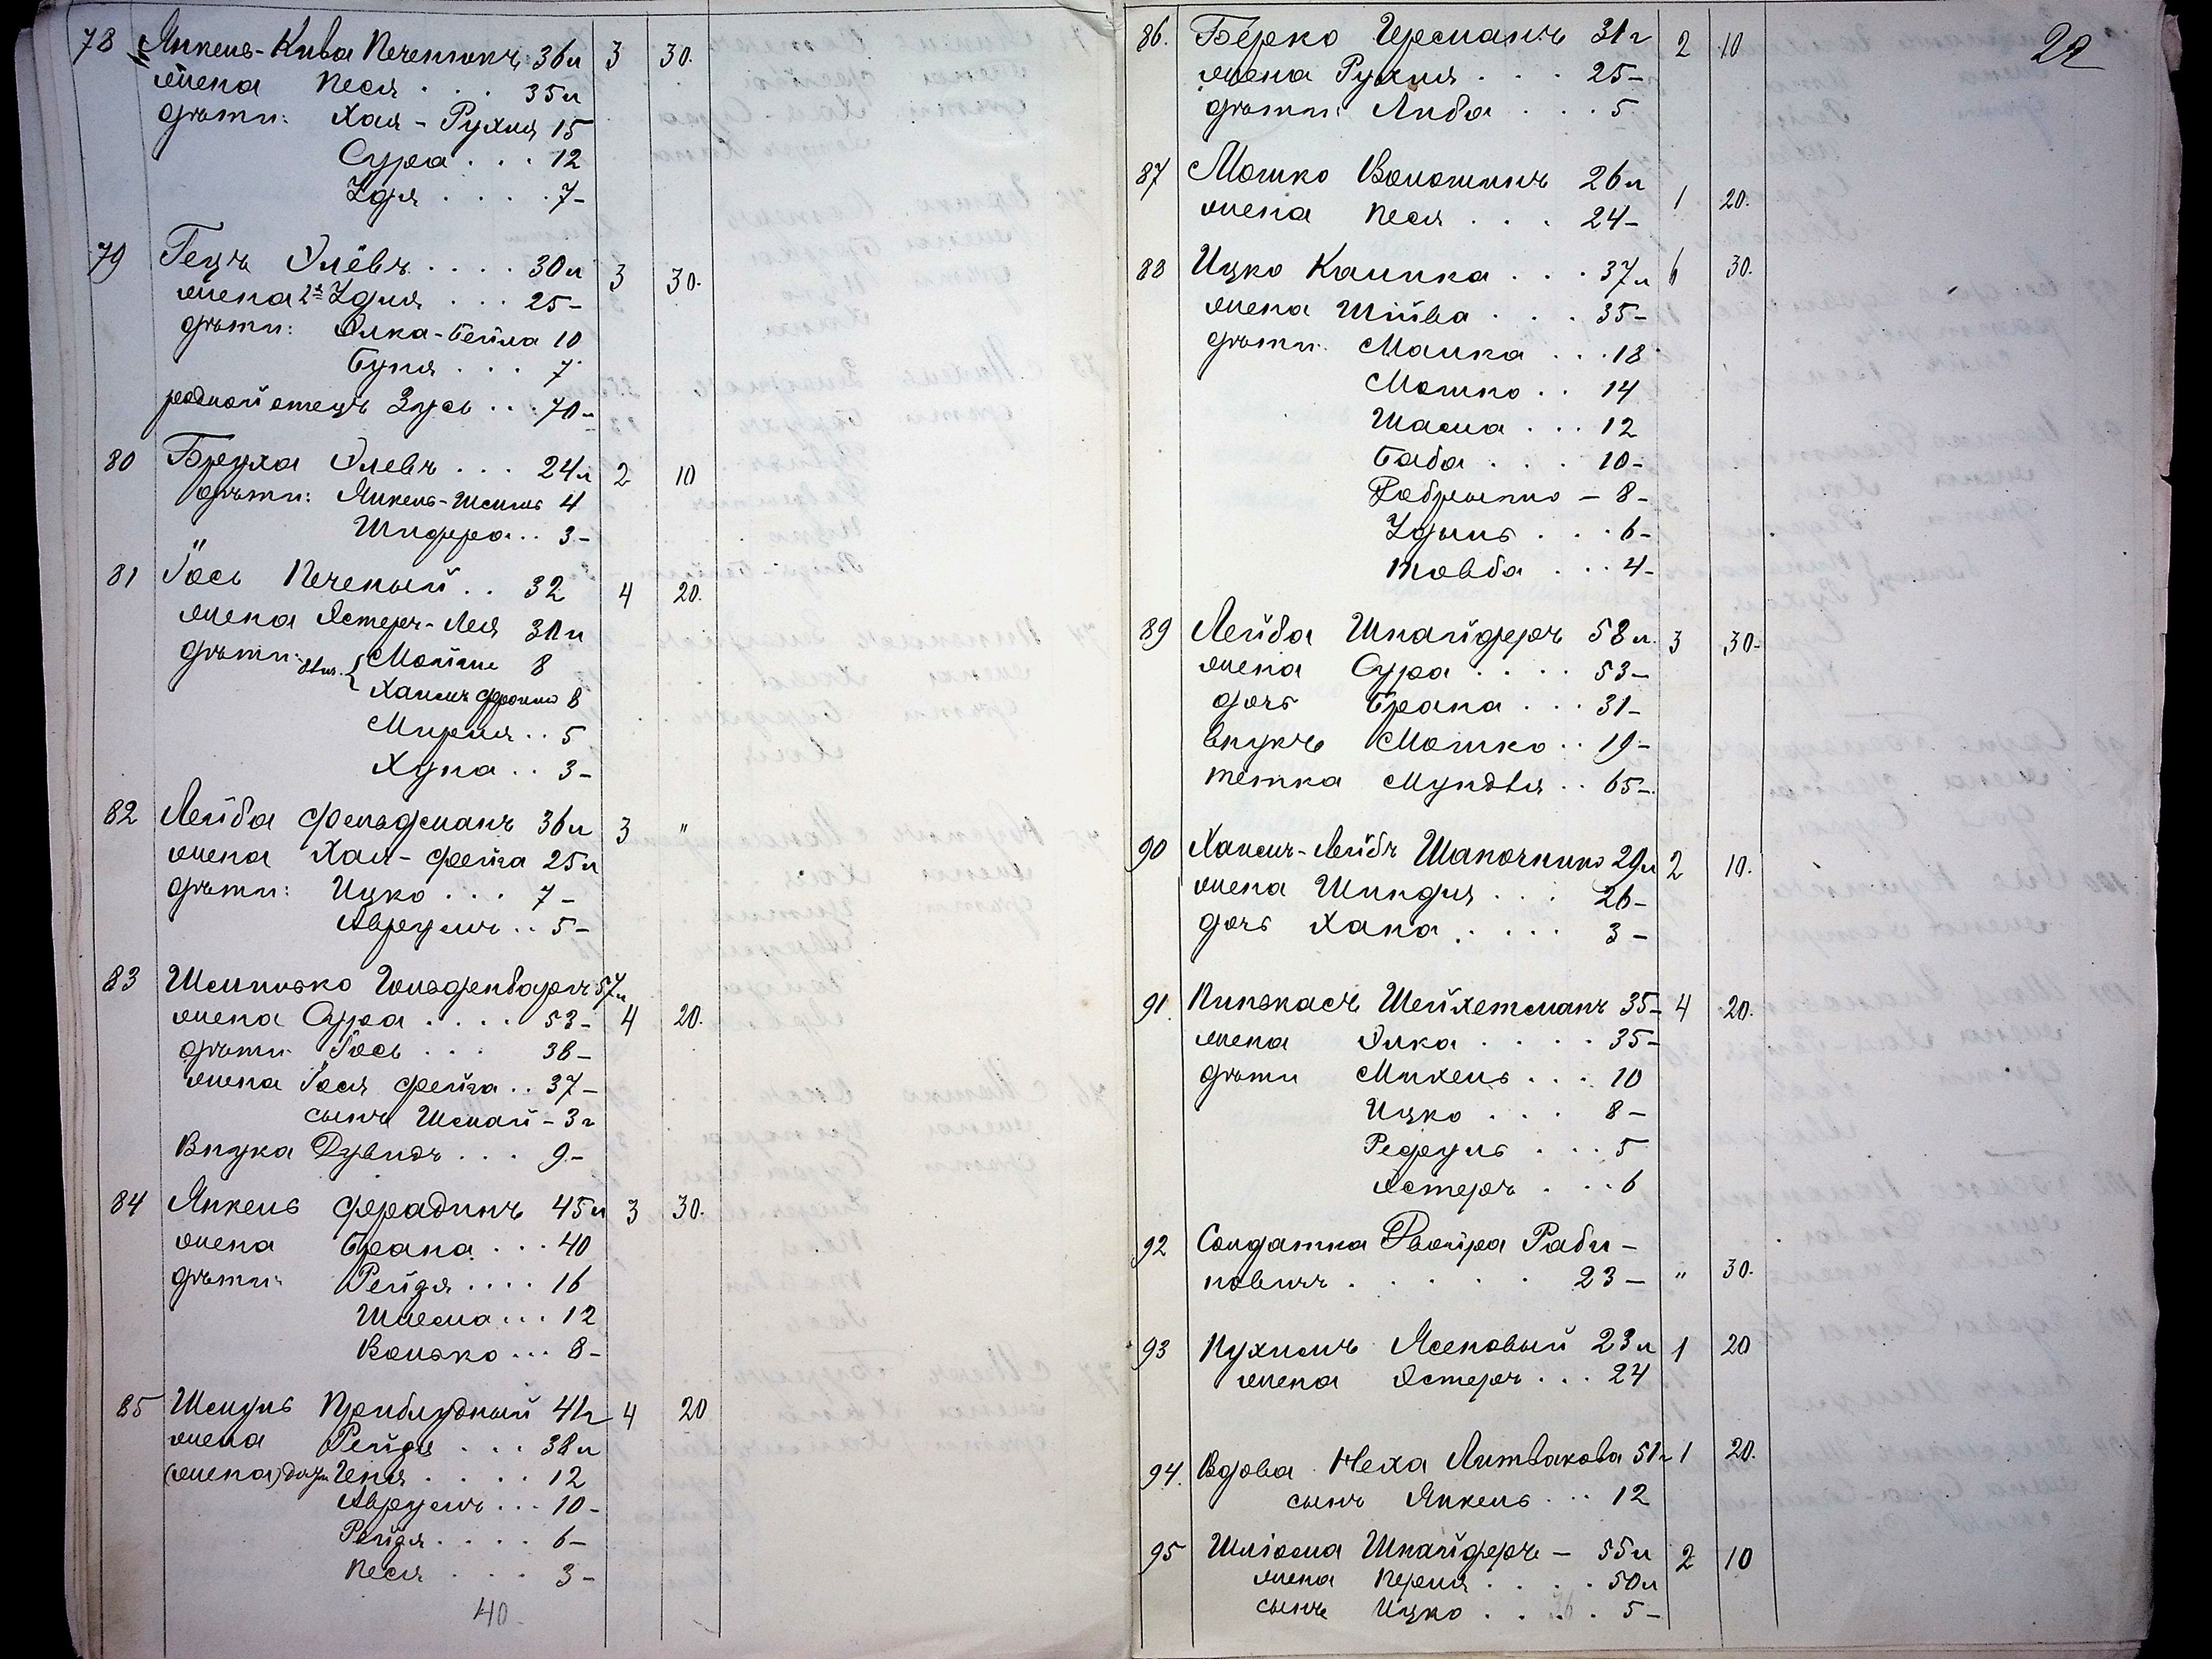 78 Янкель-Кива Печенюкъ 36 л 3 30.
жена Песя . . . 35 л
дѣти: Хая - Рухля 15
Сура . . . 12
Удя . . . . 7-
79 Гецъ Олёвъ . . . . 30 л 3 30.
жена 2я Удля . . . 25-
дѣти: Элка-Бейла 10
Буня . . . 7
родной отецъ Зусь . . . 70-
80 Бруха Олевъ . . . 24 л 2 10
дѣти: Янкель-Шмиль 4
Шифра . . 3-
81 Іось Печеный . . 32 4 20.
жена Эстеръ-Лея 30 л
дѣти: Мойше 8
Хаимъ 8
Мирля . . 5
Хука . . 3-
82 Лейба Фельдманъ 36 л 3 "
жена Хая - Фейга 25 л
дѣти: Ицко . . . 7-
Аврумъ . . 5-
83 Шмилько Гольденбаръ 57 л
жена Сура . . . . 53- 4 20.
дѣти Іось . . . 38-
жена Іося Фейга . . 37-
сынъ Шмай - 3 г
Внука Дувидъ . . . 9-
84 Янкель Фрадинъ 45 л 3 30.
жена Брана . . . 40
дѣти: Рейзя . . . . 16
Шлема . . . 12
Волько . . . 8-
85 Шмуль Приблудный 41 г 4 20
жена Рейзя . . . 38 л
(жена) дѣти Геня . . . . 12
Аврумъ . . . 10-
Рейзя . . . . 6-
Песя . . . 3-
40
22
86. Берко Германъ 31 г 2 10
жена Рухля . . . 25-
дѣти: Либа . . . 5
87 Мошко Волошинъ 26 л 1 20.
жена Песя . . . 24-
88 Ицко Калика . . . 37 л 6 30.
жена Шійва . . . 35-
дѣти: Малка . . . 18
Мошко . . 14
Шама . . . 12
Баба . . . 10-
Добрышъ - 8-
Удыль . . . 6-
Товба . . . 4-
89 Лейба Шнайдеръ 58 л. 3 30-
жена Сура . . . . 53-
дочь Брана . . . 31-
внукъ Мошко . . 19-
тетка Мундля . . 65-
90 Хаимъ-Лейбъ Шапочникъ 29 л 2 10.
жена Шиндля . . . 26-
дочь Хана . . . . 3-
91. Пинькасъ Шейхетманъ 35- 4 20.
жена Элка . . . . 35-
дѣти Михель . . . 10
Ицко . . . 8-
Рефуль . . . 5
Эстеръ . . . 6
92 Солдатка Двойра Раби-
новичъ . . . . . . 23- " 30.
93 Нухимъ Ясеновый 23 л 1 20
жена Эстеръ . . . 24
94. Вдова Неха Литвакова 51 г 1 20.
сынъ Янкель . . . 12
95 Шліома Шнайдеръ - 55 л 2 10
жена Перля . . . . 50 л
сынъ Ицко . . . . 5-